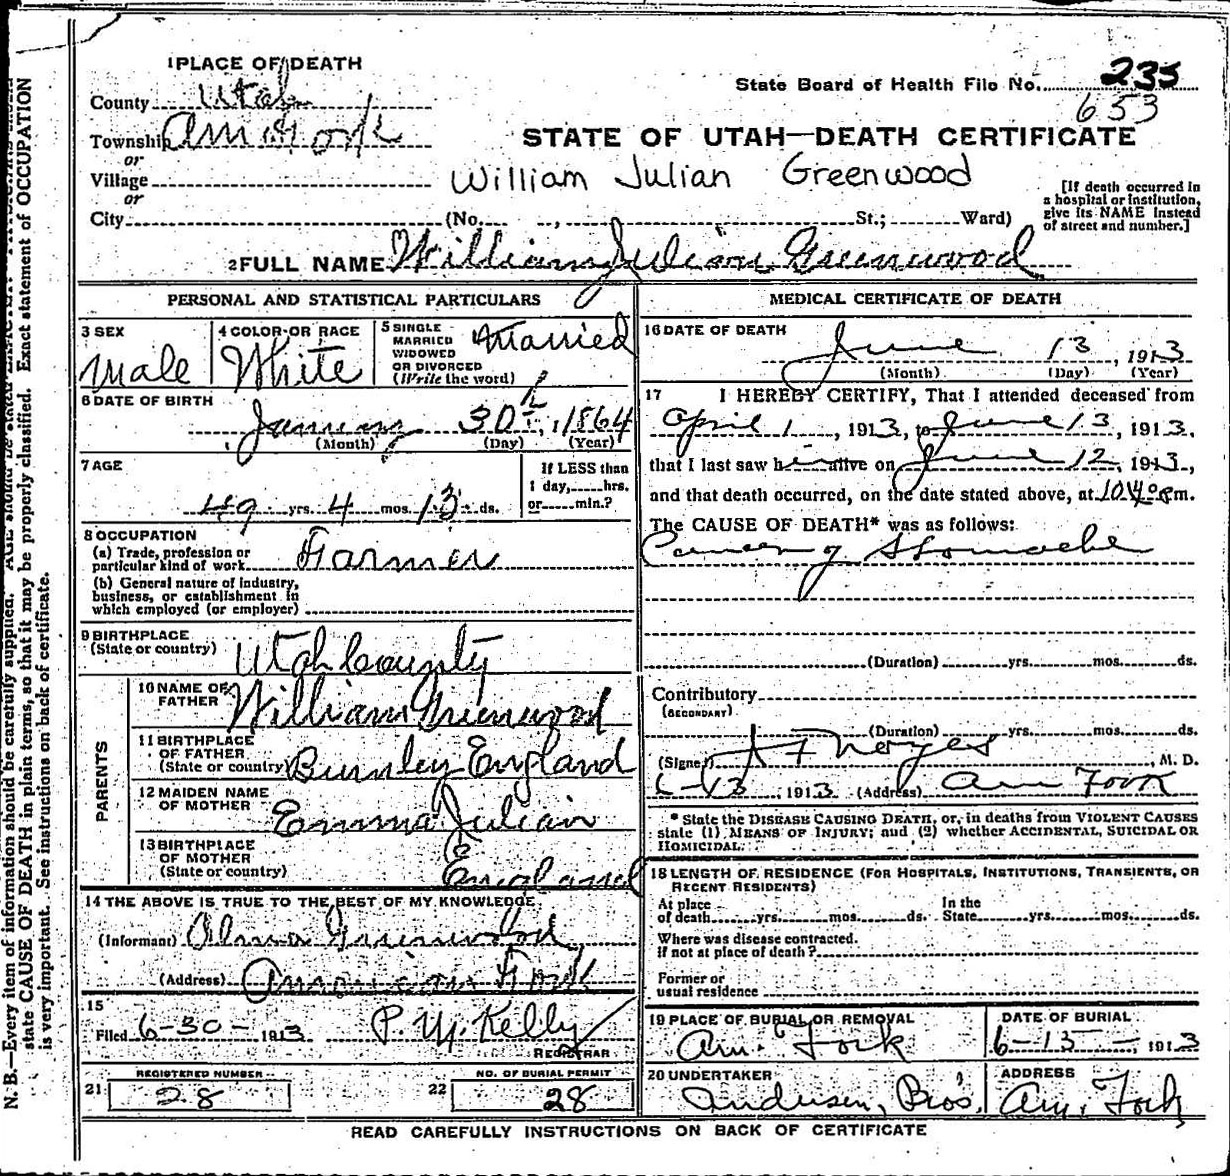 1 PLACE OF DEATH
State Board of Health File No. 235
653
County Utah
Township Am Fork
or
Village
or
City (No. , St.; Ward)
STATE OF UTAH—DEATH CERTIFICATE
William Julian Greenwood
[If death occurred in
a hospital or institution,
give its NAME instead
of street and number.]
2 FULL NAME William Julian Greenwood
PERSONAL AND STATISTICAL PARTICULARS
3 SEX
Male
4 COLOR OR RACE
White
5 SINGLE
MARRIED
WIDOWED
OR DIVORCED
(Write the word)
Married
6 DATE OF BIRTH
January 30th, 1864
(Month) (Day) (Year)
7 AGE
49 yrs. 4 mos. 13 ds.
If LESS than
1 day, hrs.
or min.?
8 OCCUPATION
(a) Trade, profession or
particular kind of work Farmer
(b) General nature of industry,
business, or establishment in
which employed (or employer)
9 BIRTHPLACE
(State or country) Utah County
PARENTS
10 NAME OF
FATHER William Greenwood
11 BIRTHPLACE
OF FATHER
(State or country) Burnley England
12 MAIDEN NAME
OF MOTHER Emma Julian
13 BIRTHPLACE
OF MOTHER
(State or country) England
14 THE ABOVE IS TRUE TO THE BEST OF MY KNOWLEDGE
(Informant) Alma Greenwood
(Address) American Fork
15
Filed 6-30- 1913 P. M. Kelly
REGISTRAR
REGISTERED NUMBER
21 28
NO. OF BURIAL PERMIT
22 28
MEDICAL CERTIFICATE OF DEATH
16 DATE OF DEATH
June 13, 1913
(Month) (Day) (Year)
17 I HEREBY CERTIFY, That I attended deceased from
April 1, 1913, to June 13, 1913,
that I last saw him alive on June 12, 1913,
and that death occurred, on the date stated above, at 10.40 pm.
The CAUSE OF DEATH* was as follows:
Cancer of Stomache
(Duration) yrs. mos. ds.
Contributory
(SECONDARY)
(Duration) yrs. mos. ds.
(Signed) Noyes, M. D.
6-13, 1913 (Address) Am Fork
* State the DISEASE CAUSING DEATH, or, in deaths from VIOLENT CAUSES
state (1) MEANS OF INJURY; and (2) whether ACCIDENTAL, SUICIDAL OR
HOMICIDAL.
18 LENGTH OF RESIDENCE (FOR HOSPITALS, INSTITUTIONS, TRANSIENTS, OR
RECENT RESIDENTS)
At place
of death yrs. mos. ds. In the
State yrs. mos. ds.
Where was disease contracted.
If not at place of death?
Former or
usual residence
19 PLACE OF BURIAL OR REMOVAL
Am. Fork
DATE OF BURIAL
6-15-, 1913
20 UNDERTAKER
Andersen, Bros.
ADDRESS
Am. Fork
READ CAREFULLY INSTRUCTIONS ON BACK OF CERTIFICATE
N. B.—Every item of information should be carefully supplied. AGE should be stated EXACTLY. Exact statement of OCCUPATION
state CAUSE OF DEATH in plain terms, so that it may be properly classified.
is very important. See instructions on back of certificate.